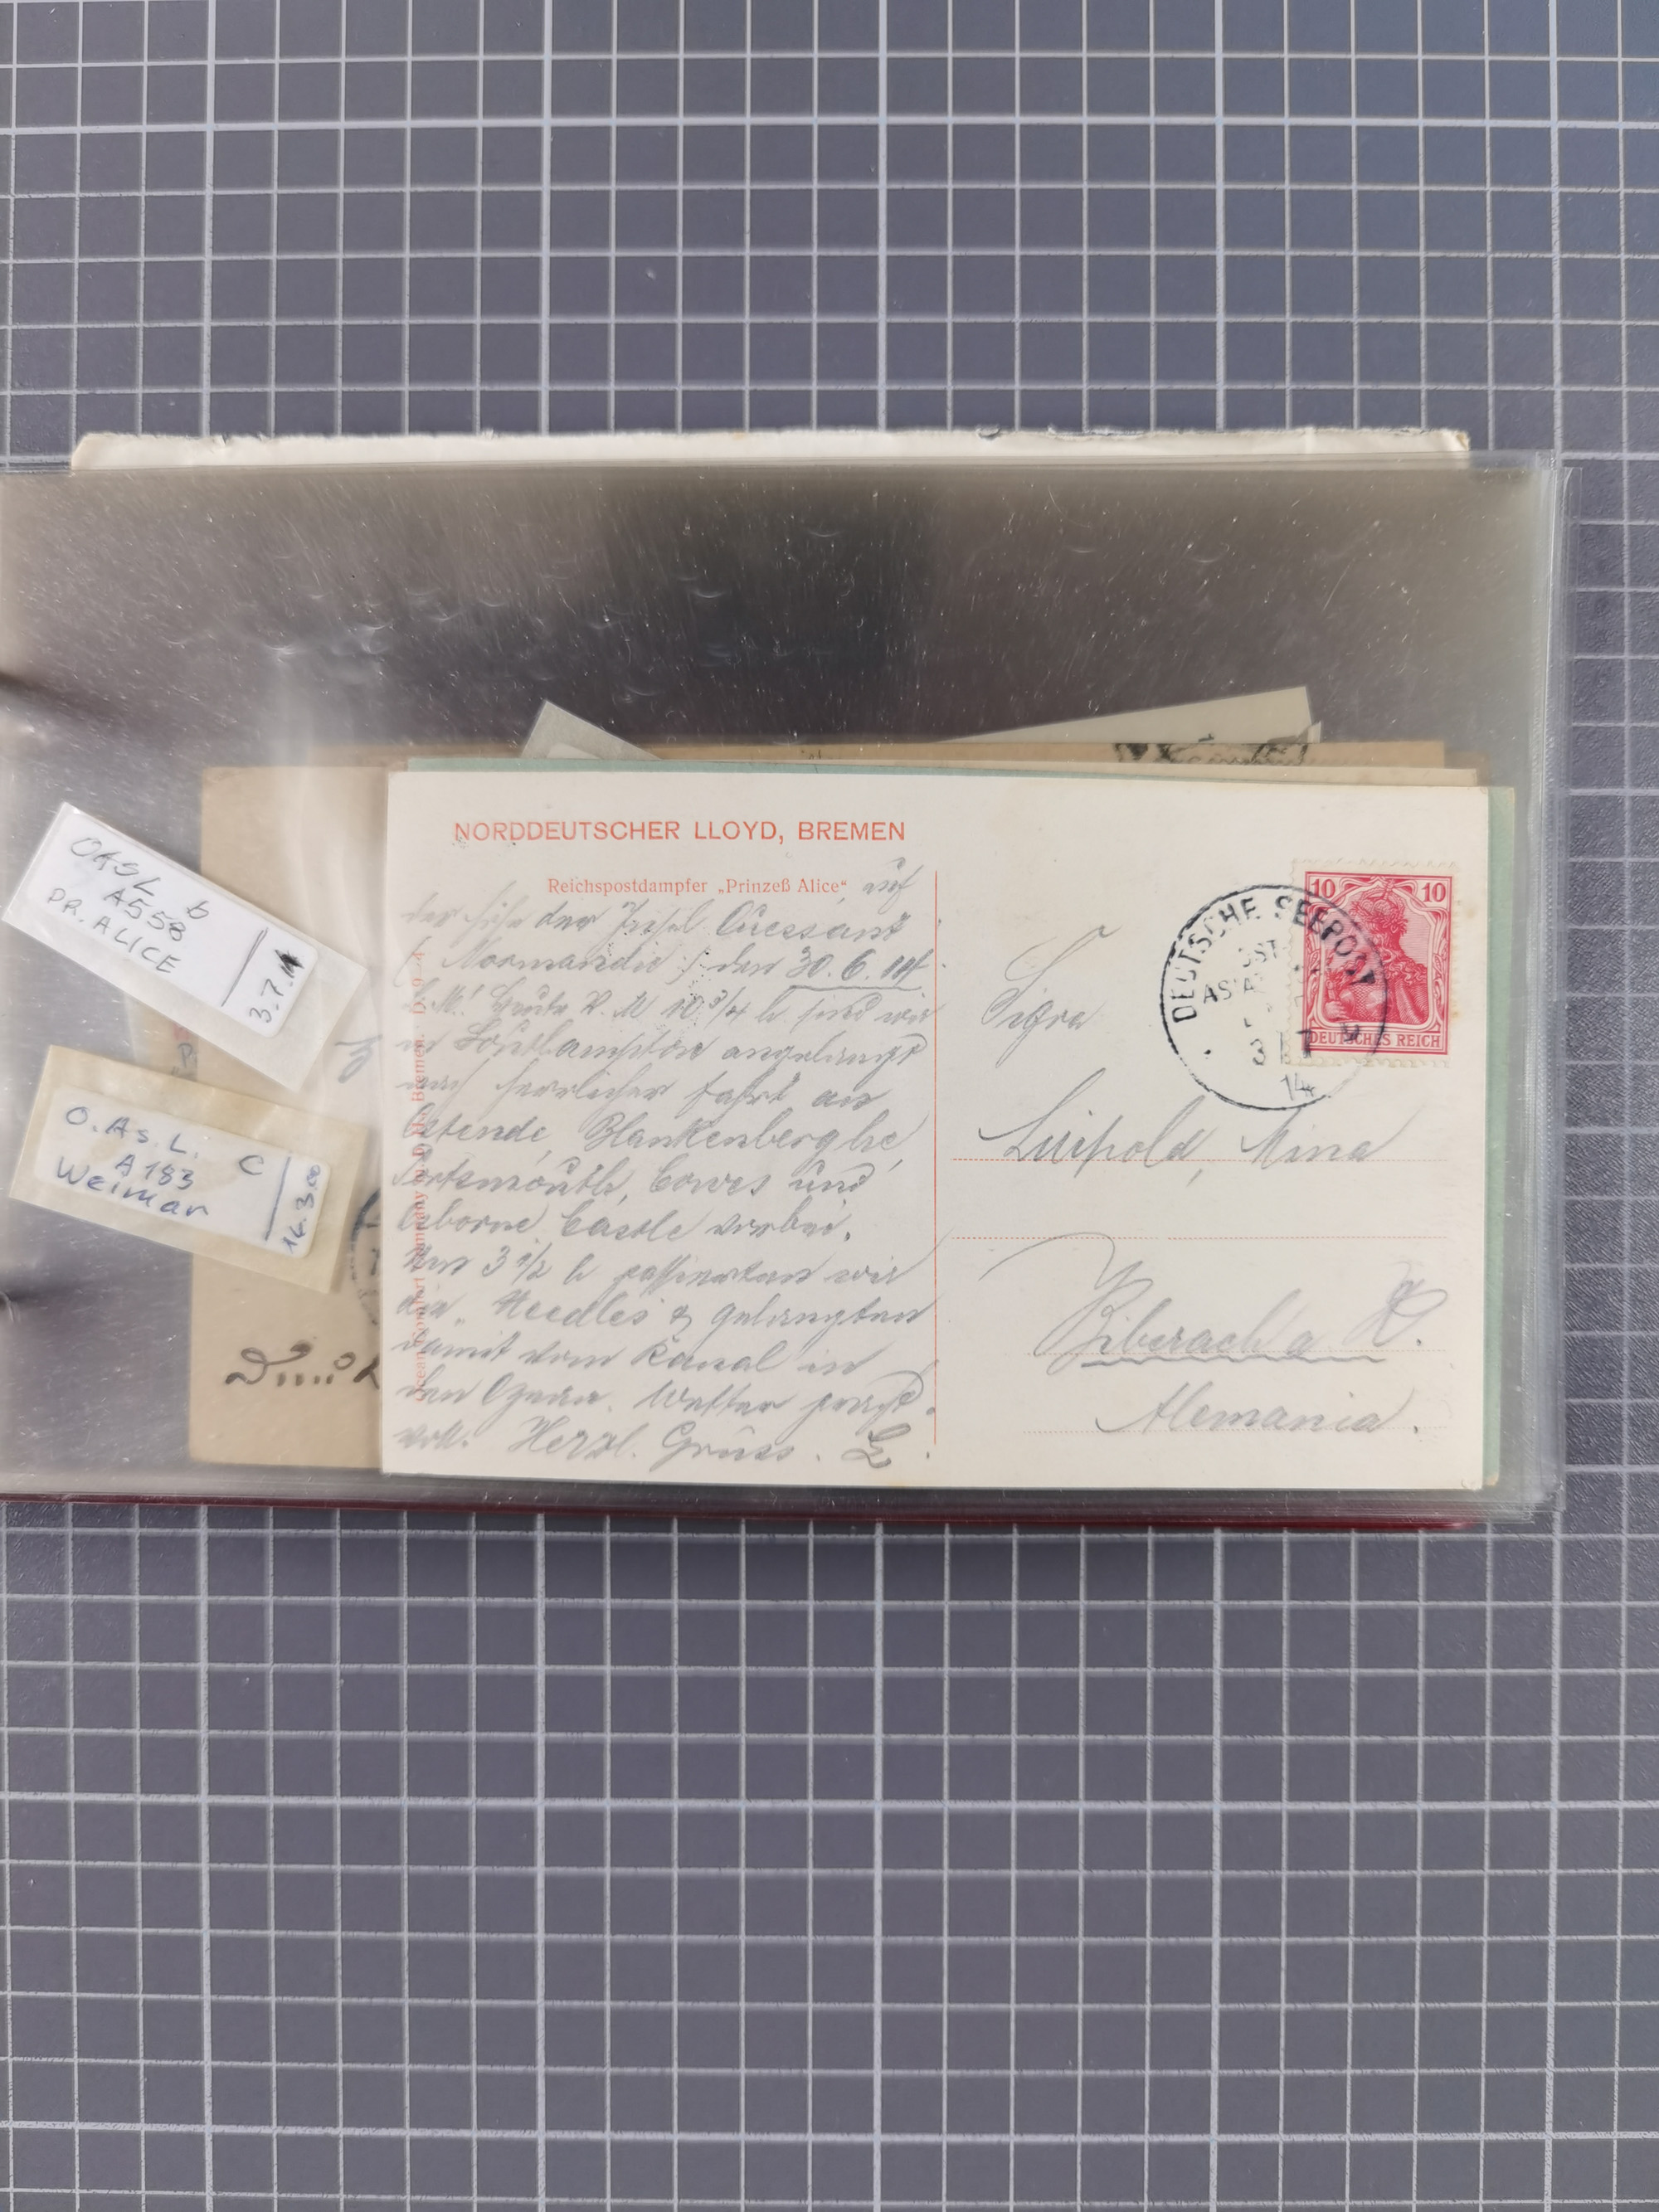 OASL b
A558
PR. ALICE
3.7.14
O. As. L. C
A 183
Weimar
16.3.00
NORDDEUTSCHER LLOYD, BREMEN
Reichspostdampfer „Prinzeß Alice“, auf
der Höhe der Insel Ouessant
(Normandie) den 30.6.14.
L. M! Heute V. M 10 3/4 h sind wir
in Southampton angelangt
nach herrlicher Fahrt an
Ostende, Blankenberghe,
Portsmouth, Cowes und
Osborne Castle vorbei.
Um 3 1/2 h passierten wir
die „Needles & gelangten
damit vom Kanal in
den Ozean. Wetter pracht-
voll. Herzl. Gruss. L.
Ocean Comfort Company Bremen. D. 9-4
DEUTSCHE SEEPOST
OST-
ASIAT
3 7
14
10 10
DEUTSCHES REICH
Sigra
Luipold, Mina
Biberach a R.
Alemania.